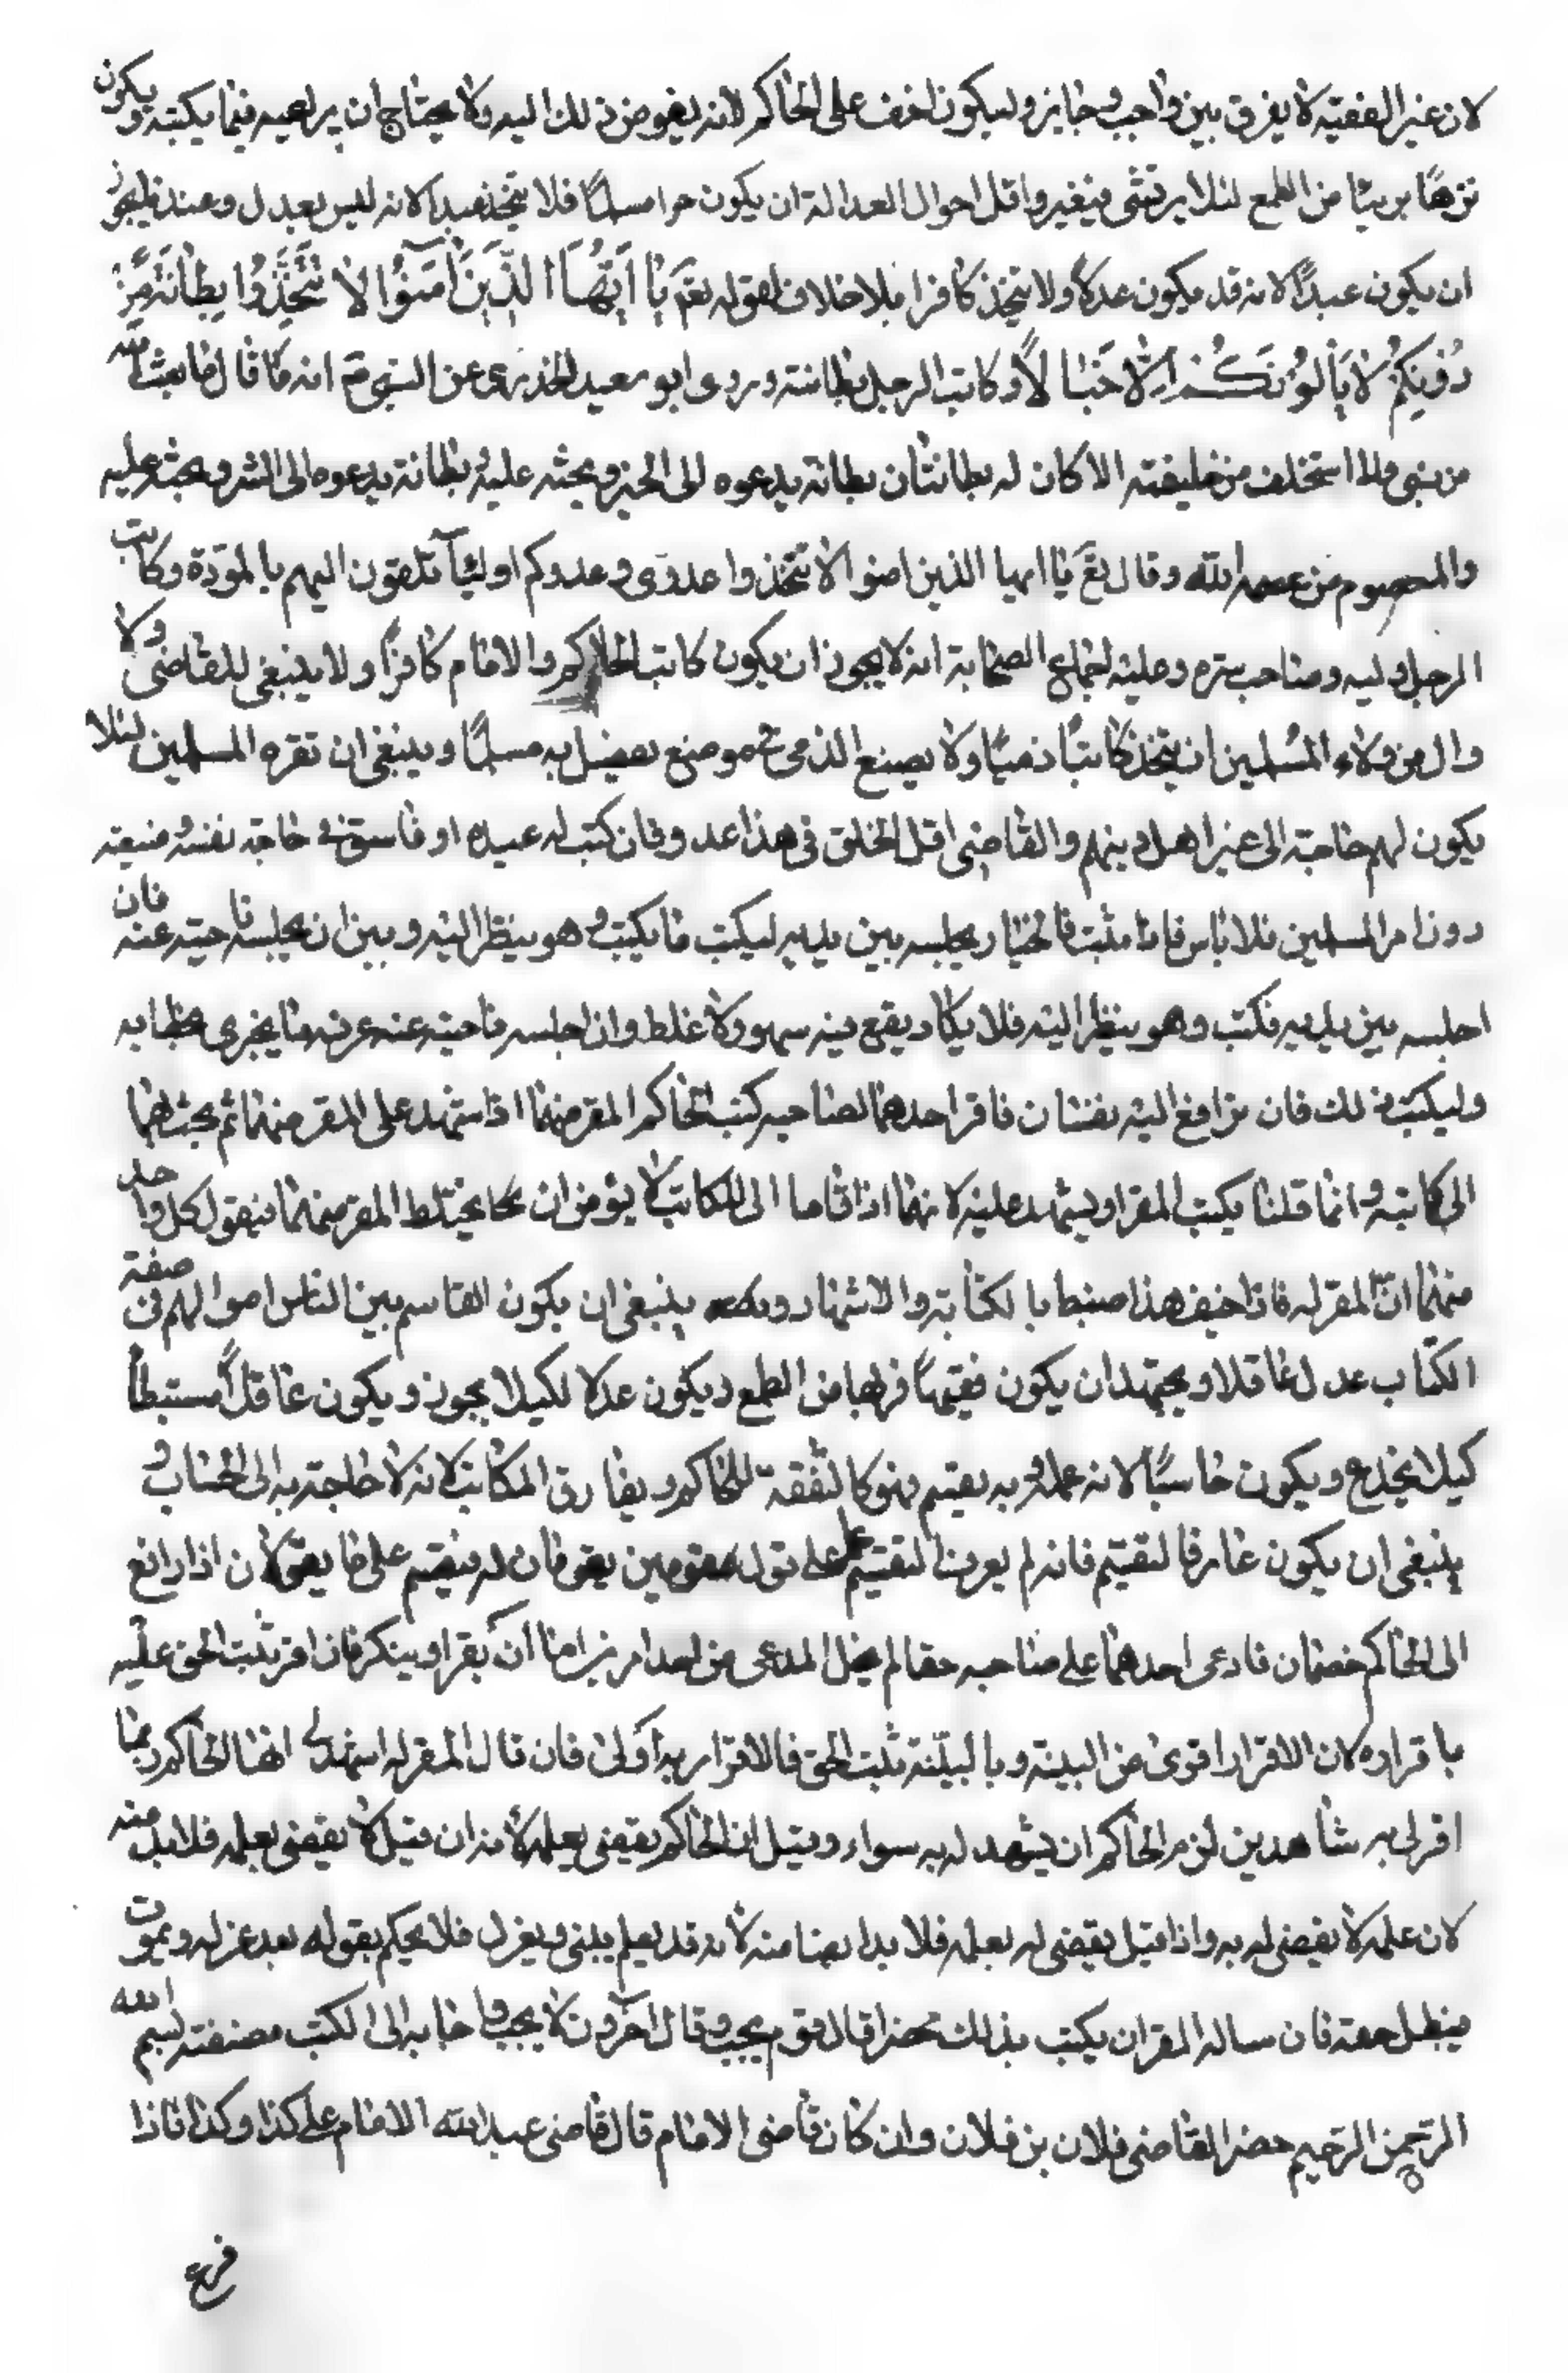 لان غير الفقيه لا يفرق بين واجب وجايز وليكون اخف على الحاكم لانه يفوض ذلك اليه ولا يحتاج ان يراعيه فيما يكتبه ويكون
نزهًا بريئا من الطمع لئلا يرتشى فيغير واقل احوال العدالة ان يكون حرا مسلمًا فلا يتخذ عبدا لانه ليس بعدل وعندنا يجوز
ان يكون عبدًا لانه قد يكون عدلا ولا يتخذ كافرا بلا خلاف لقوله تع يَا اَيُّهَا الَّذِينَ آمَنُوا لَا تَتَّخِذُوا بِطَانَةً مِّنْ
دُونِكُمْ لَا يَأْلُونَكُمْ اِلّا خَبَالًا وكاتب الرجل بطانته وروى ابو سعيد الخدرى عن النبى انه ما قال ما بعث الله
من نبى ولا استخلف من خليفته الا كان له بطانتان بطانة يدعوه الى الخير ويحثه عليه وبطانة يدعوه الى الشر ويحثه عليه
والمعصوم من عصمه الله وقال تع يا ايها الذين امنوا لا تتخذوا عدوى وعدوكم اولياآ تلقون اليهم بالمودّة وكاتب
الرجل وليه وصاحب سره وعليه اجماع الصحابة انه لا يجوز ان يكون كاتب الحاكم والامام كافرًا ولا ينبغى للقاضى ولا
وال من ولاء المسلمين ان يتخذ كاتبًا ذميًا ولا يصنع الذمى فى موضع يفضل به مسلمًا وينبغى ان تقره المسلمين لئلا
يكون لهم حاجة الى غير اهل دينهم والقاضى اقل الخلق فى هذا عدو فان كتب له عبده او فاسق فى حاجة نفسه وضيعته
دون امر المسلمين فلا باس فاذا ثبت فالخيار يجلسه بين يديه ليكتب ما يكتب وهو ينظر اليه وبين ان يجلسه ناحيته عنه فان
اجلسه بين يديه فكتب وهو ينظر اليه فلا يكاد يقع فيه سهو ولا غلط وان اجلسه ناحيته عنه عرفه ما يجرى خطابه
وليكتب ذلك فان ترافع اليه نفسان فاقر احدهما لصاحبه كتب الحاكم المقر منهما اذا شهد على المقر منهما ثم بحثهما
الى كاتبه وانما قلنا يكتب المقر او يشهد عليه لانهما اذا قاما الى الكاتب لا يؤمن ان يختلط المقر منهما فيقول كل واحد
منهما انّ المقر له فاذا خيف هذا ضبط بالكتابة والاشهاد ينبغى ان يكون القاسم بين الناس اموالهم فى صفة
الكتاب عدل عاقلا ويجتهد ان يكون فقيهًا نزها من الطمع ويكون عدلا لكيلا يجوز ويكون عاقلًا مستبطًا
كيلا يخدع ويكون حاسبًا لانه عمله وبه يقسم فهو كالفقه للحاكم ويفارق الكاتب لانه لا حاجة به الى الحساب و
ينبغى ان يكون عارفا لتقيتم فانه لم يعرف التقيتم على قول مقومين يقو فان له فيقسم على ما يقولان اذا رافع
الى الحاكم خصمان فادعى احدهما على صاحبه حقا لم يخل المدعى من احد امرين اما ان يقر او ينكر فان اقر ثبت الحق عليه
باقراره لان الاقرار اقوى من البينة وبالبيّنة ثبت الحق فالاقرار به اولى فان قال المقر له اشهد لى ايها الحاكم بما
اقر لى به شاهدين لزم الحاكم ان يشهد له به سواء وقيل ان الحاكم يقضى بعلمه لانه ان قيل لا يقضى بعلمه فلابد منه
لان علمه لا يقضى له به واذا قيل يقضى له بعلمه فلا بد ايضا منه لانه قد يعلم ينسى ويعزل فلا يحكم بقوله بعد عزله ويموت
فيبطل حقه فان ساله المقر ان يكتب بذلك محضرا قال قوم يجب وقال آخرون لا يجب واجابه الى الكتب مصنفته بسم الله
الرحمن الرحيم حضر القاضى فلان بن فلان وان كان قاضى الامام قال قاضى عبد الله الامام على كذا وكذا فاذا
فرع